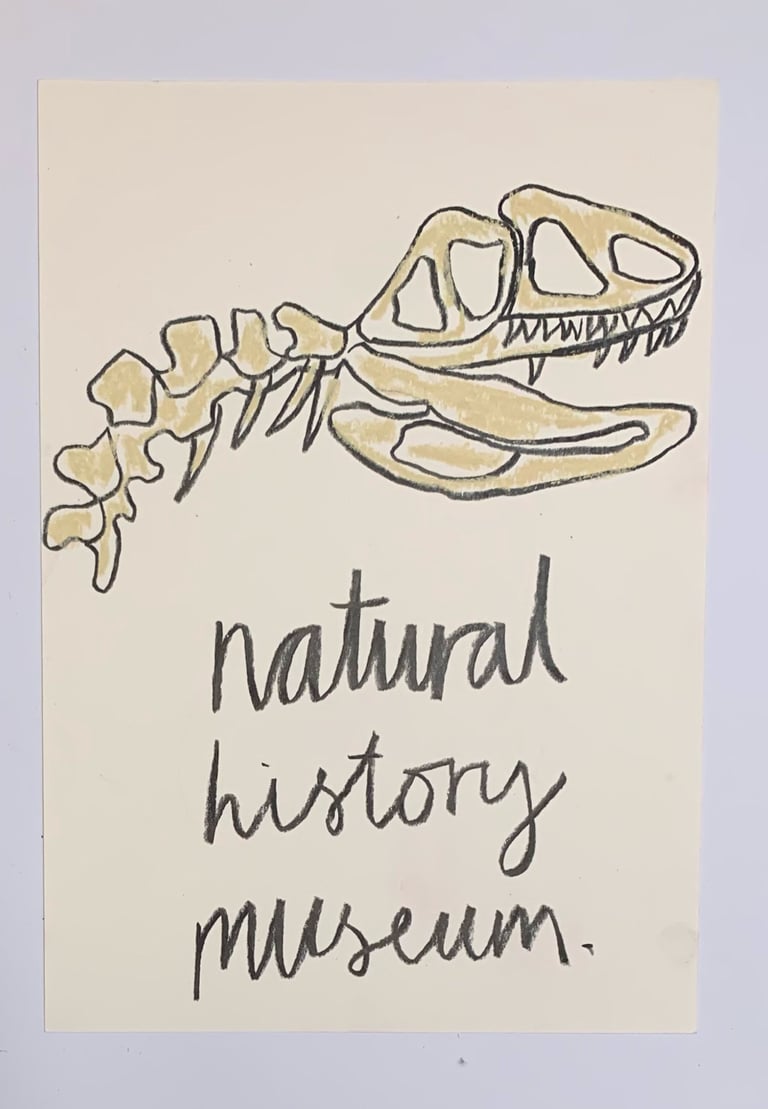 natural
history
museum.